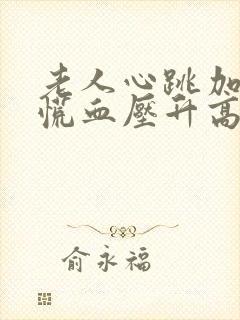 老人心跳加
慌血壓升高
俞永福